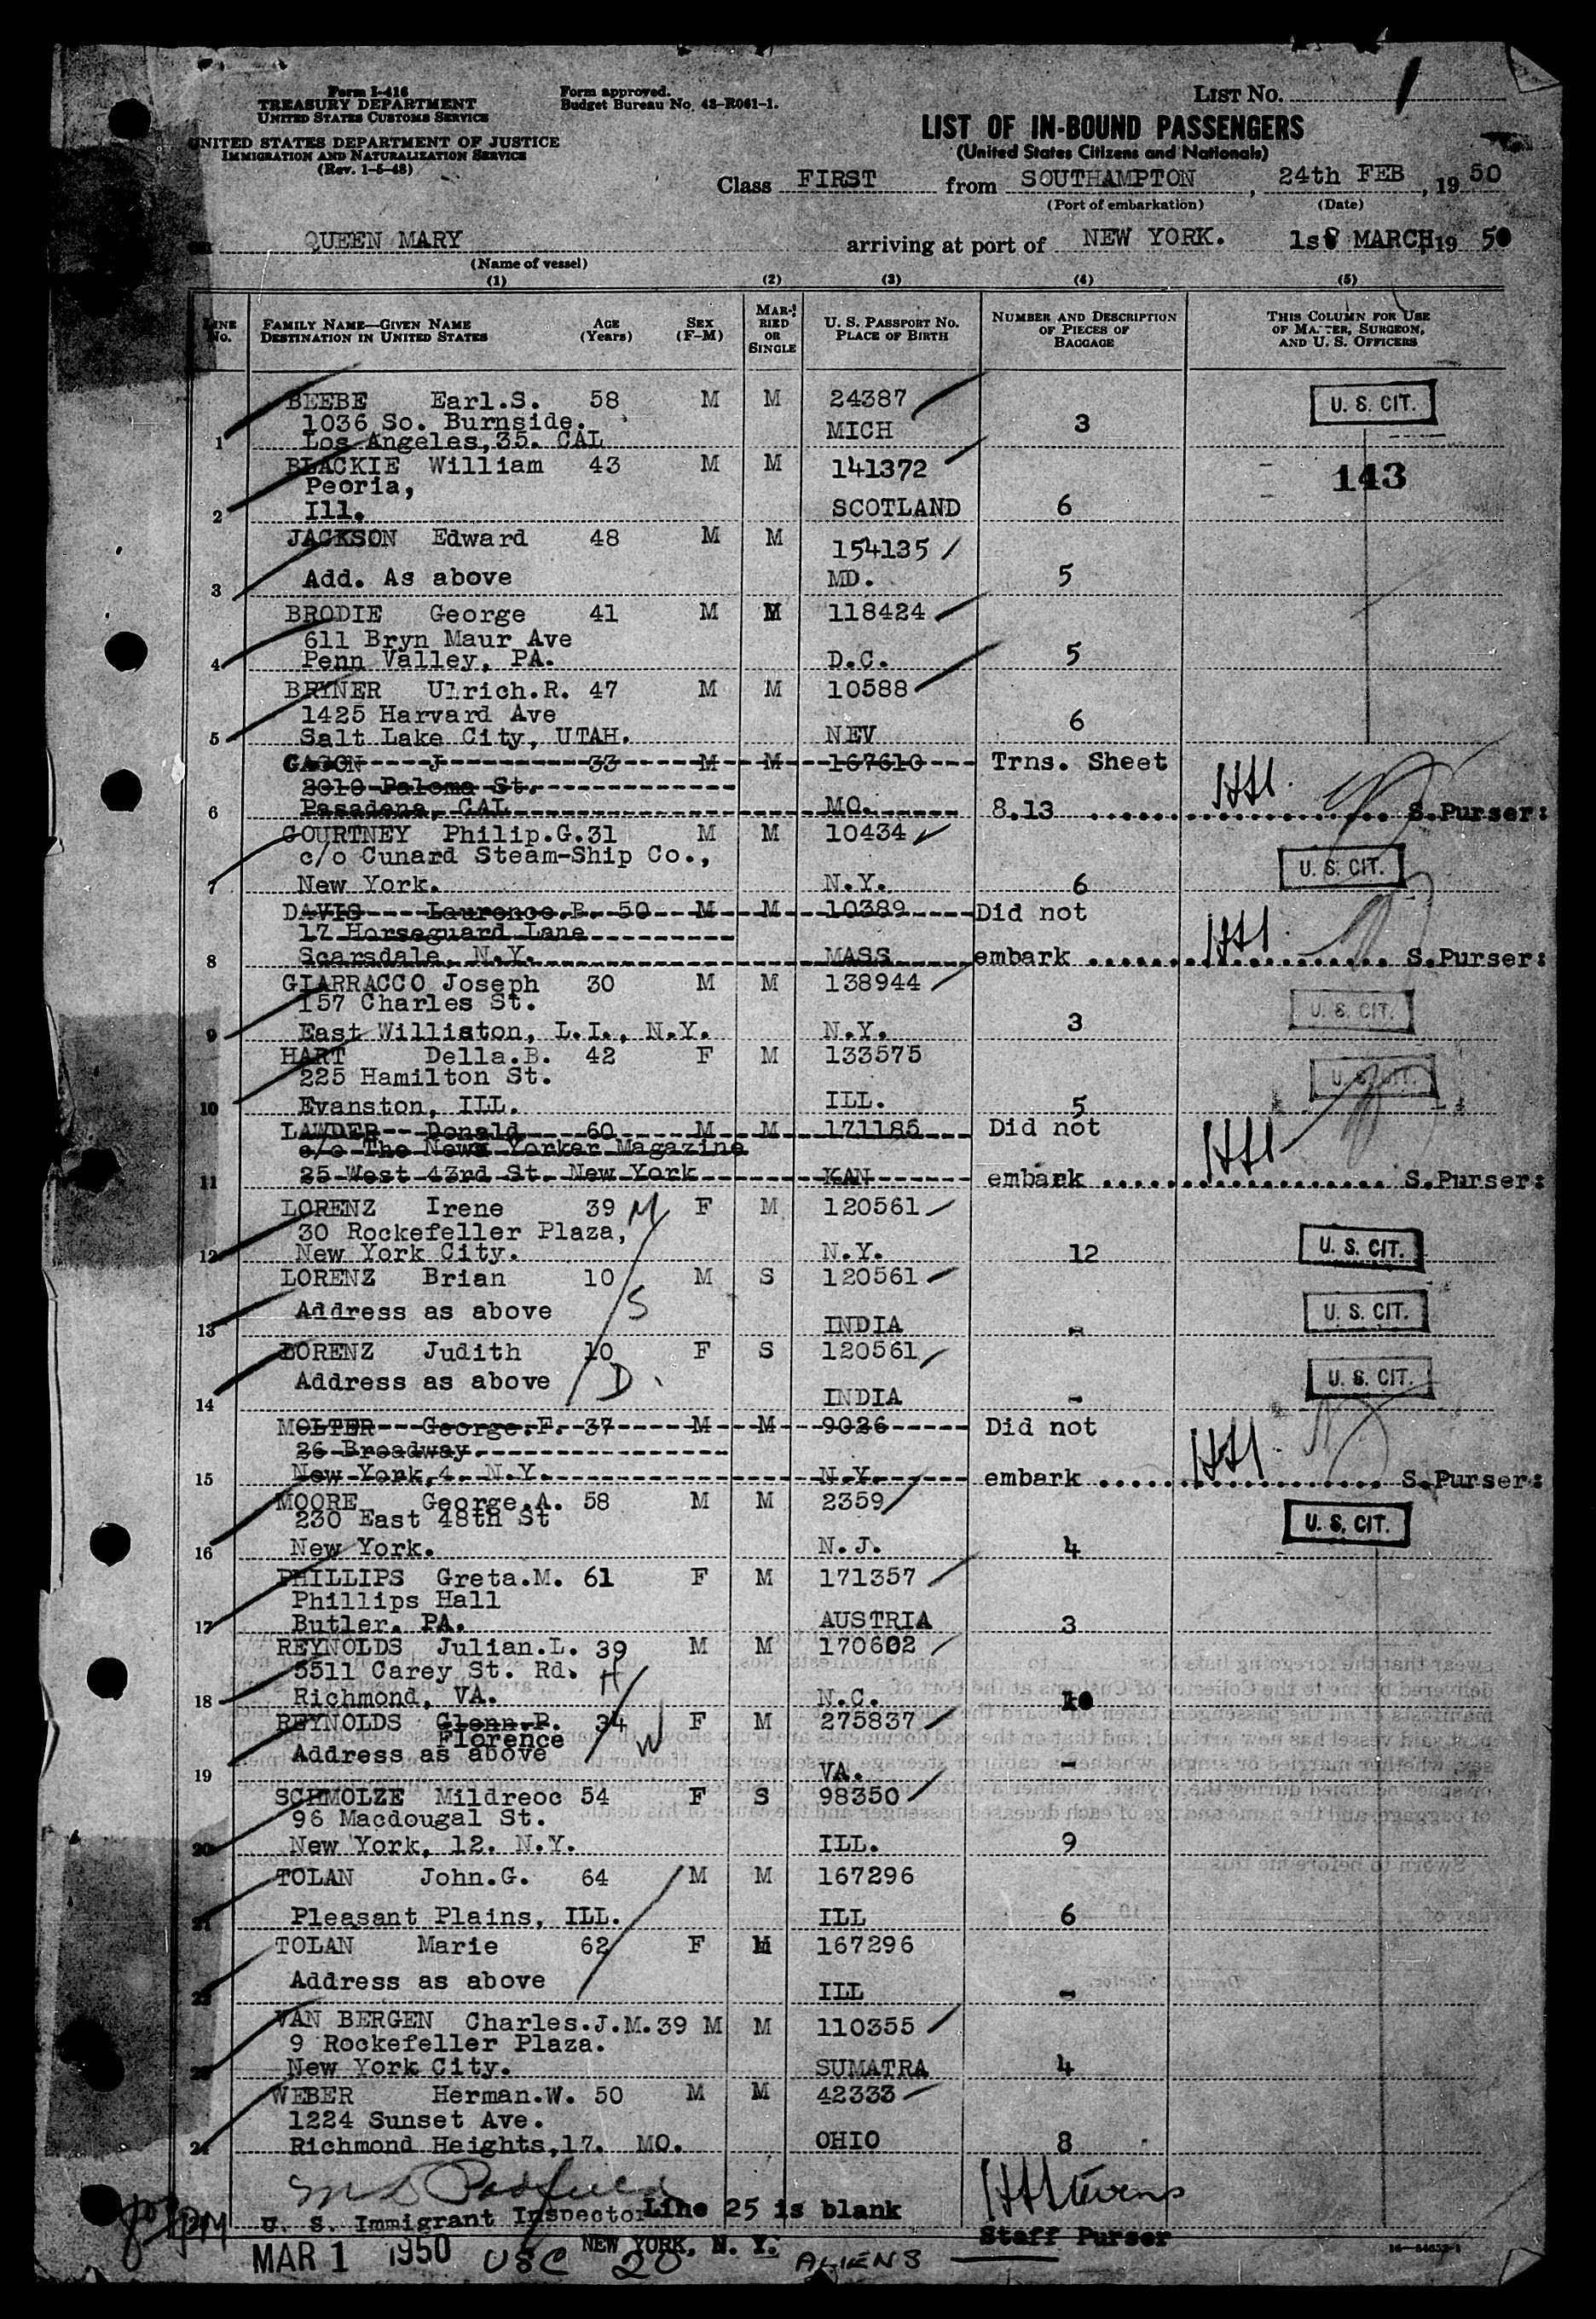 Form I-416
TREASURY DEPARTMENT
UNITED STATES CUSTOMS SERVICE
UNITED STATES DEPARTMENT OF JUSTICE
IMMIGRATION AND NATURALIZATION SERVICE
(Rev. 1-5-48)
Form approved.
Budget Bureau No. 43-R061-1.
LIST NO. 1
LIST OF IN-BOUND PASSENGERS
(United States Citizens and Nationals)
Class FIRST from SOUTHAMPTON, 24th FEB, 19 50
(Port of embarkation) (Date)
QUEEN MARY arriving at port of NEW YORK. 1st MARCH, 19 50
(Name of vessel)
(1) (2) (3) (4) (5)
LINE NO. FAMILY NAME—GIVEN NAME DESTINATION IN UNITED STATES AGE (Years) SEX (F-M) MARRIED OR SINGLE U. S. PASSPORT NO. PLACE OF BIRTH NUMBER AND DESCRIPTION OF PIECES OF BAGGAGE THIS COLUMN FOR USE OF MASTER, SURGEON, AND U. S. OFFICERS
BEEBE Earl.S. 58 M M 24387 U. S. CIT.
1036 So. Burnside. MICH 3
1 Los Angeles,35. CAL
BLACKIE William 43 M M 141372 143
Peoria,
2 Ill. SCOTLAND 6
JACKSON Edward 48 M M 154135
3 Add. As above MD. 5
BRODIE George 41 M M 118424
611 Bryn Maur Ave
4 Penn Valley, PA. D.C. 5
BRYNER Ulrich.R. 47 M M 10588
1425 Harvard Ave 6
5 Salt Lake City, UTAH. NEV
GAGON J 33 M M 167610 Trns. Sheet
2010 Paloma St.
6 Pasadena, CAL MO. 8.13 HHS. S.Purser:
COURTNEY Philip.G.31 M M 10434
c/o Cunard Steam-Ship Co., U. S. CIT.
7 New York. N.Y. 6
DAVIS Laurence.B. 50 M M 10389 Did not
17 Horseguard Lane
8 Scarsdale, N.Y. MASS embark HHS. S.Purser:
GIARRACCO Joseph 30 M M 138944
157 Charles St. U. S. CIT.
9 East Williston, L.I., N.Y. N.Y. 3
HART Della.B. 42 F M 133575
225 Hamilton St. U. S. CIT.
10 Evanston, ILL. ILL. 5
LAWDER Donald 60 M M 171185 Did not
c/o The New Yorker Magazine
11 25 West 43rd St. New York KAN embark HHS S.Purser:
LORENZ Irene 39 M F M 120561
30 Rockefeller Plaza,
12 New York City. N.Y. 12 U. S. CIT.
LORENZ Brian 10 M S 120561
Address as above S U. S. CIT.
13 INDIA -
LORENZ Judith 10 F S 120561
Address as above D. U. S. CIT.
14 INDIA -
MOLTER George.F. 37 M M 9026 Did not
26 Broadway.
15 New York,4. N.Y. N.Y. embark HHS. S.Purser:
MOORE George.A. 58 M M 2359
230 East 48th St U. S. CIT.
16 New York. N.J. 4
PHILLIPS Greta.M. 61 F M 171357
Phillips Hall
17 Butler. PA. AUSTRIA 3
REYNOLDS Julian.L. 39 M M 170602
5511 Carey St. Rd. H
18 Richmond, VA. N.C. 10
REYNOLDS Glenn.P. 34 F M 275837
Florence W
Address as above
19 VA. -
SCHMOLZE Mildreoc 54 F S 98350
96 Macdougal St.
20 New York, 12. N.Y. ILL. 9
TOLAN John.G. 64 M M 167296
21 Pleasant Plains, ILL. ILL 6
TOLAN Marie 62 F M 167296
Address as above
22 ILL -
VAN BERGEN Charles.J.M.39 M M 110355
9 Rockefeller Plaza.
23 New York City. SUMATRA 4
WEBER Herman.W. 50 M M 42333
1224 Sunset Ave.
24 Richmond Heights,17. MO. OHIO 8
HHStevens
U. S. Immigrant Inspector Line 25 is blank
Staff Purser
MAR 1 1950 USC 20 NEW YORK, N. Y. ALIENS